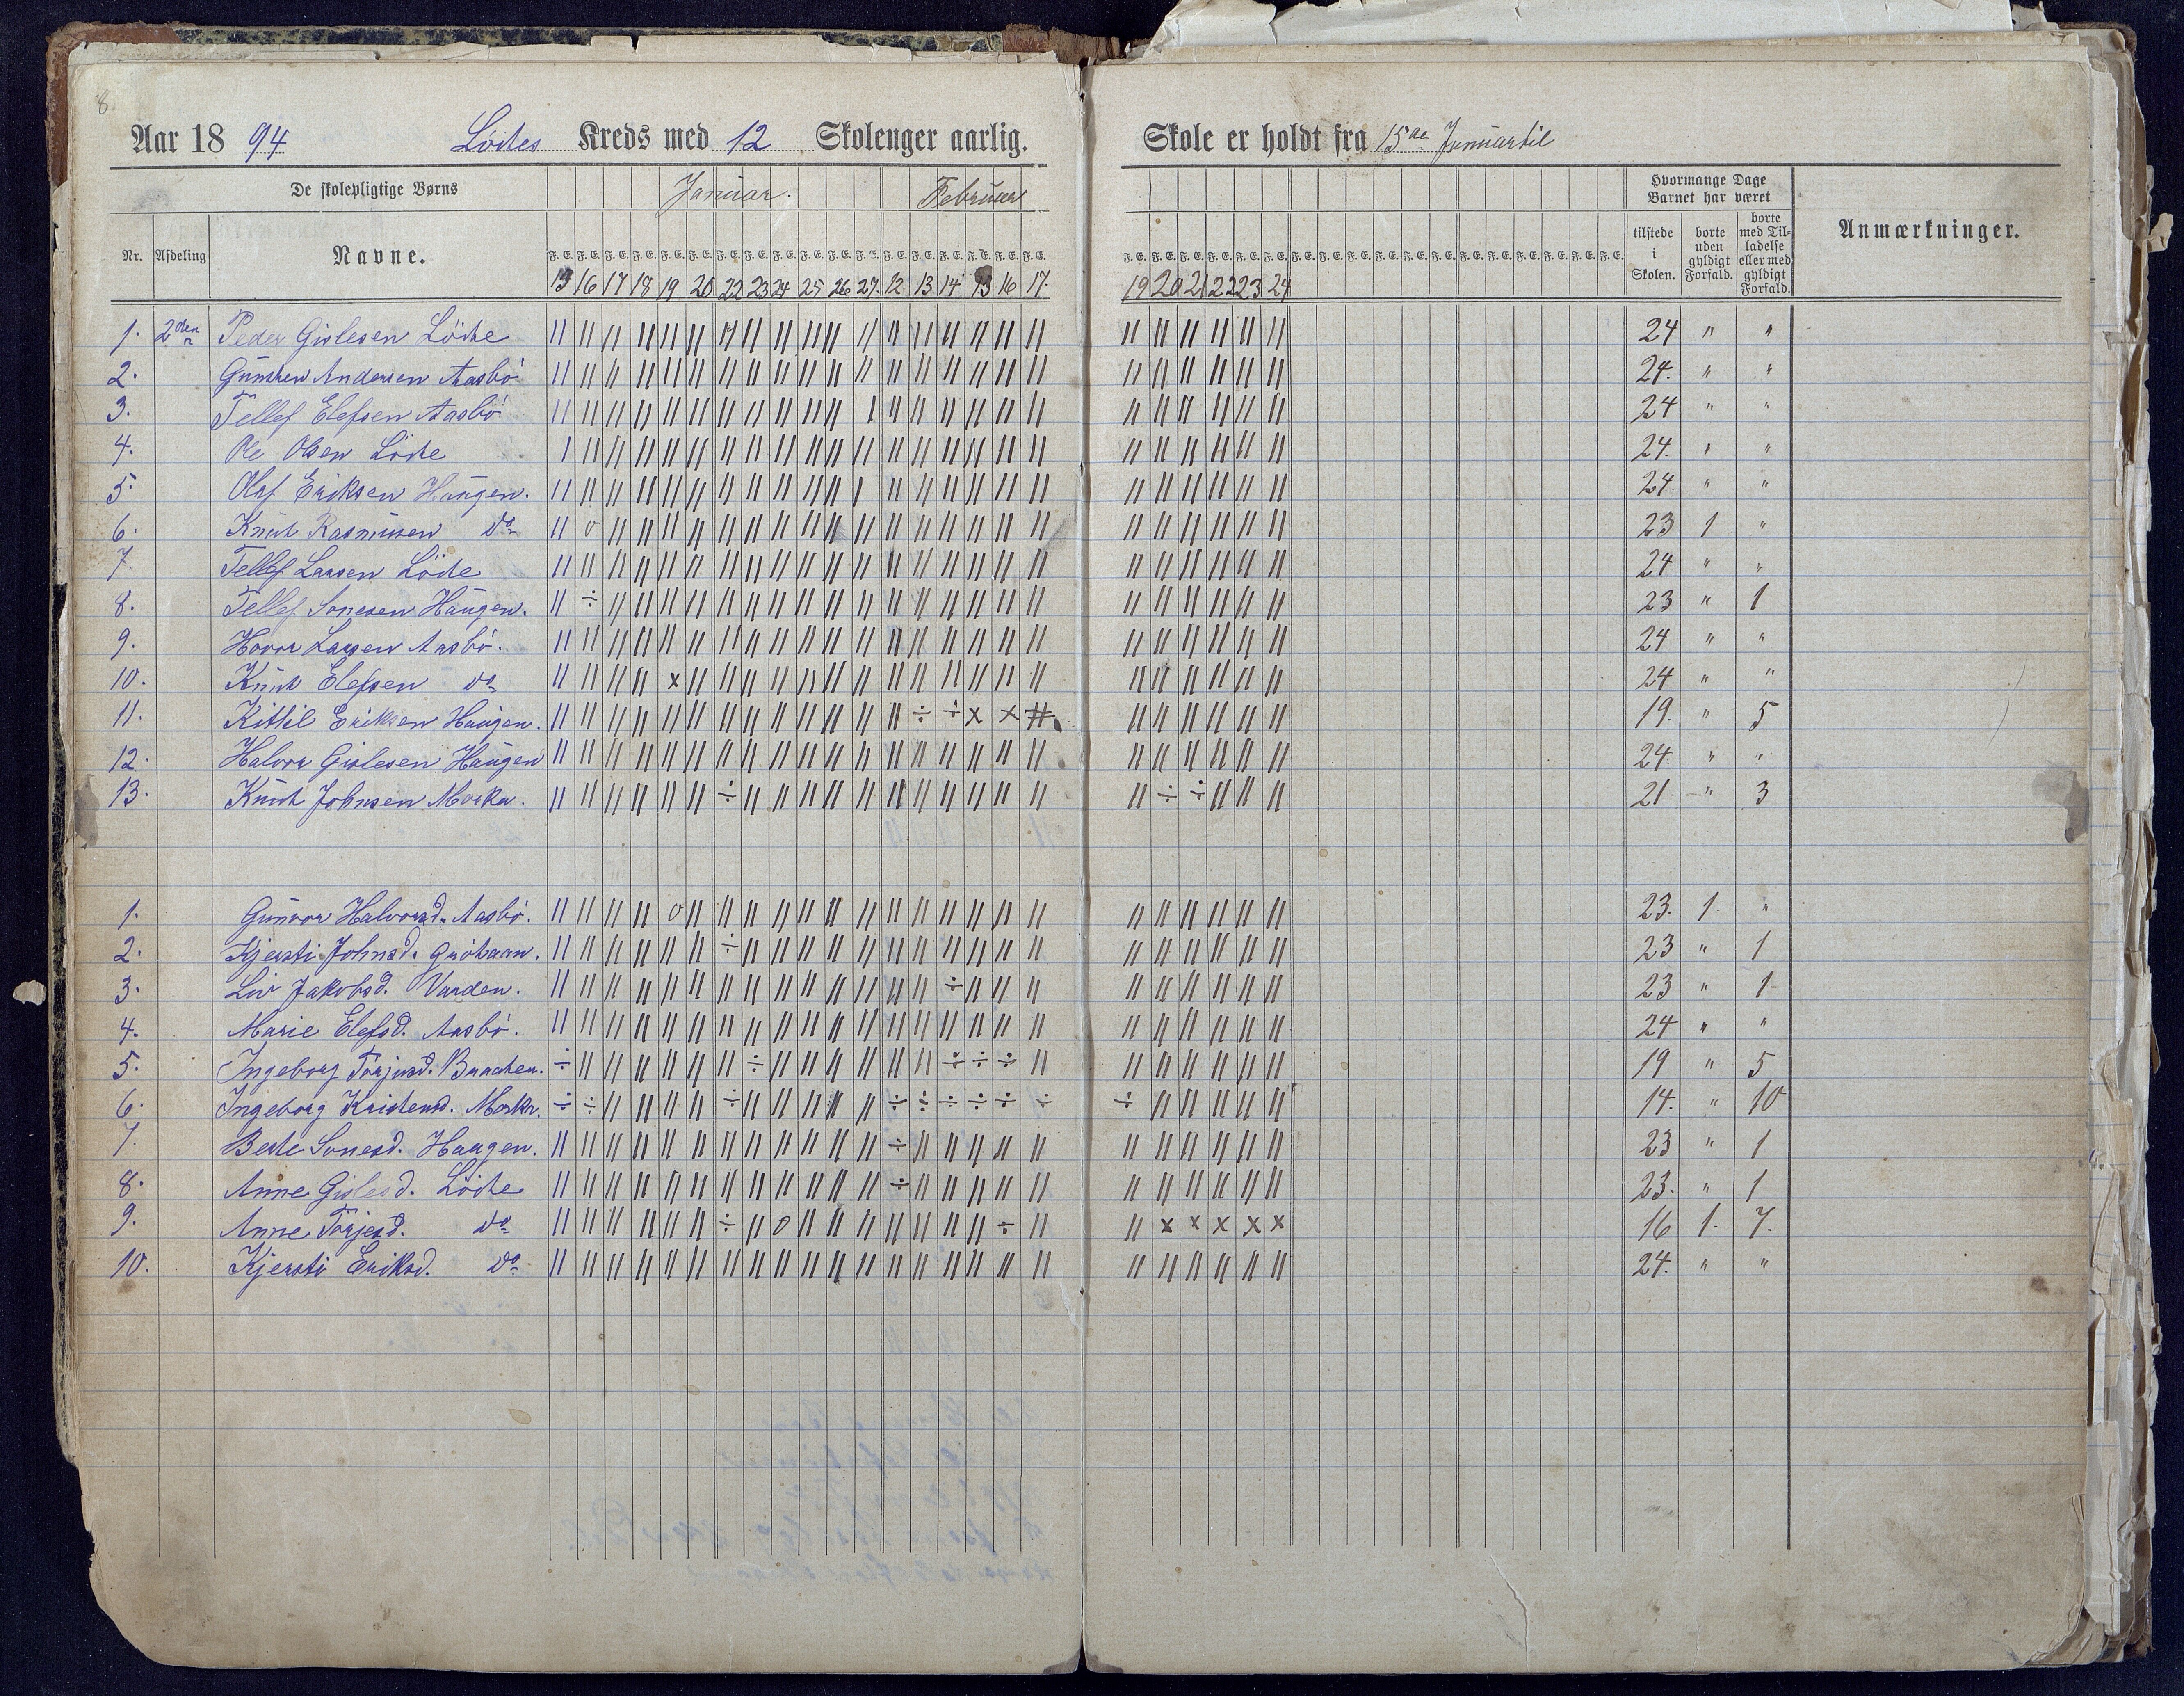 8
Aar 1894 Löites Kreds med 12 Skoleuger aarlig. Skole er holdt fra 15de Januar til
De skolepligtige Børns Januar. Februar Hvormange Dage Barnet har været
Nr. Afdeling Navne. F. E. tilstede i Skolen. borte uden gyldigt Forfald. borte med Tilladelse eller med gyldigt Forfald. Anmærkninger.
15 16 17 18 19 20 22 23 24 25 26 27. 12 13 14 15 16 17. 19 20 21 22 23 24
1. 2den Peder Gislesen Löite 24 " "
2. Gunsten Andersen Aasbö 24. " "
3. Tellef Elefsen Aasbö 24 " "
4. Ole Olsen Löite 24. " "
5. Olaf Eriksen Haugen. 24 " "
6. Knut Rasmusen do 23 1 "
7. Tellef Larsen Löite 24 " "
8. Tellef Sonesen Haugen. 23 " 1
9. Hovor Larsen Aasbö. 24 " "
10. Knut Elefsen do 24 " "
11. Kittil Eriksen Haugen. 19. " 5
12. Halvor Gislesen Haugen 24. " "
13. Knut Johnsen Morka. 21 " 3
1. Gunvor Halvorsd. Aasbö. 23. 1. "
2. Kjersti Johnsd. 23 " 1
3. Liv Jakobsd. Varden. 23 " 1
4. Marie Elefsd. Aasbö. 24 " "
5. Ingeborg Torjusd. 19 " 5
6. Ingeborg Kristensd. Morka. 14. " 10
7. Berte Sonesd. Haugen. 23 " 1
8. Anne Gislesd. Löite 23. " 1
9. Anne Torjesd. do 16 1. 7.
10. Kjersti Eriksd. do 24. " "